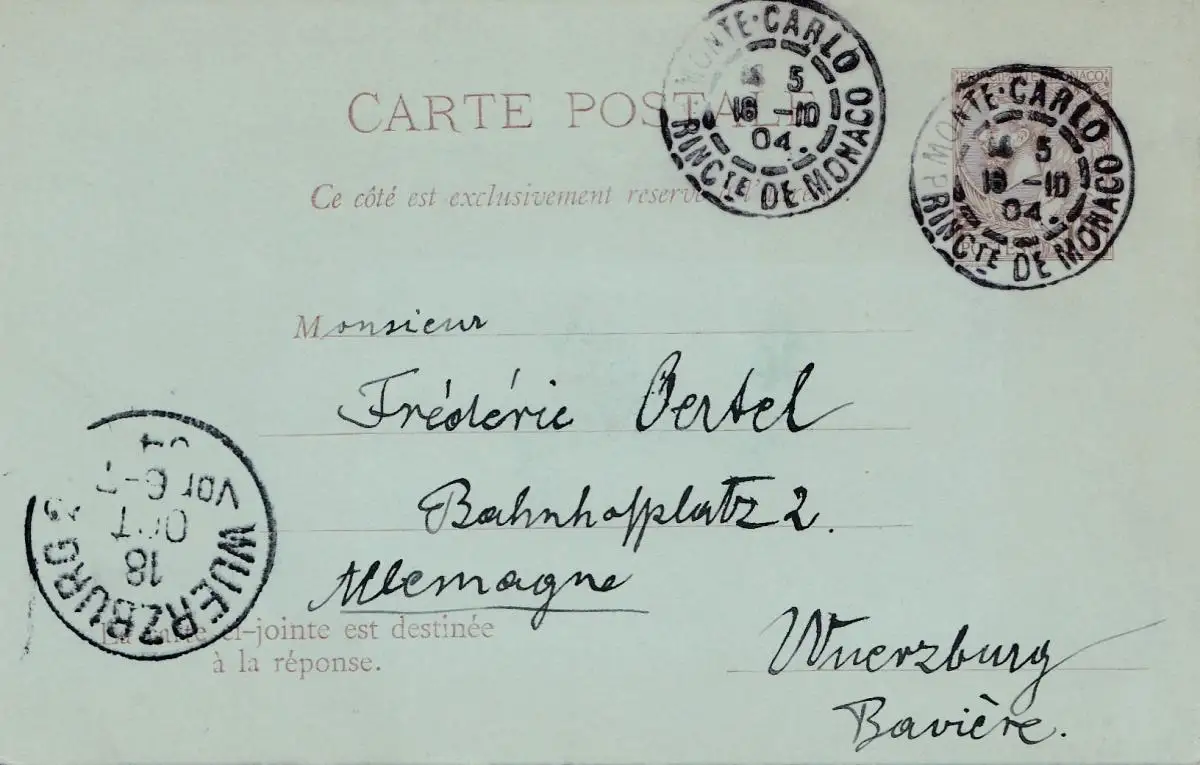 CARTE POSTALE
MONTE-CARLO
5
16 -10
04.
PRINCTE DE MONACO
MONTE-CARLO
5
16 -10
04.
PRINCTE DE MONACO
Ce côté est exclusivement reservé
Monsieur
Frédéric Oertel
Bahnhofplatz 2.
Allemagne
WUERZBURG
18
OCT
Vor 6-7
ci-jointe est destinée
à la réponse.
Wuerzburg
Bavière.